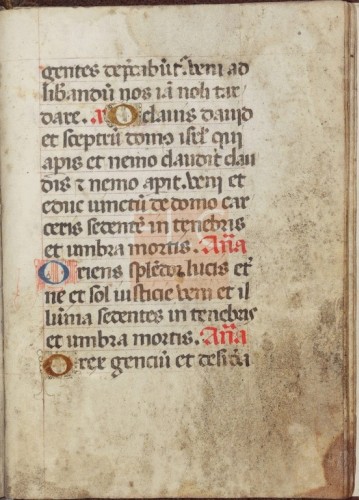 gentes dep̄cabūt᷑. veni ad
libandū nos iā noli tar
dare. O clavis dauid
et sceptrū domo isrl̄ qui
apis et nemo claudit clau
dis ⁊ nemo apit. veni et
educ vinctū de domo car
ceris sedentē in tenebris
et umbra mortis. Añа
Oriens splēdor lucis et̄
ne et sol iusticie veni et il
lumīa sedentes in tenebris
et umbra mortis. Añа
O rex genciū et desid̄a